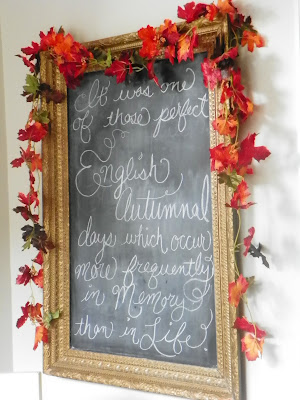 It was one
of those perfect
English
Autumnal
days which occur
more frequently
in Memory
than in Life